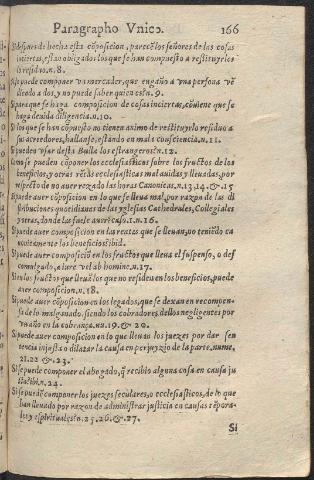 Paragrapho Vnico. 166
Si despues de hecha esta cõposicion, parecẽ los señores de las cosas
inciertas, estan obligados los que se han compuesto a restituyrles
lo residuo, n.8.
Si se puede componer vn mercader, que engaño a vna persona vẽ
diendo a dos, y no puede saber quien es? n.9.
Si para que se haga composicion de cosas inciertas, cõuiene que se
haga deuida diligencia. n.10.
Si los que se hã cõpuesto no tienen animo de restituyrlo residuo a
su acreedores, hallandose, estando en mala consciencia. n.11.
Si puedẽ vsar desta Bulla los estrangeros? n.12.
Como se pueden cõponer los ecclesiasticos sobre los fructos de los
beneficios, y otras rẽtas ecclesiasticas mal auidas y lleuadas, por
respecto de no auer rezado las horas Canonicas. n.13.14.&.15
Si puede auer cõposicion en lo que se lleua mal, por razon de las di
stribuciones quotidianas de las yglesias Cathedrales, Collegiales
y otras, donde las suele auer? n.16.
Si puede auer composicion en las rentas que se lleuan, no teniẽdo ca
nonicamente los beneficios? ibid.
Si puede auer cõposicion en los fructos que lleua el suspenso, o des
comulgado, a iure vel ab homine. n.17.
Si en los fructos que lleuã los que no residen en los beneficios, puede
auer composicion. n.18.
Si puede auer cõposicion en los legados, que se dexan en recompen
sa de lo malganado. siendo los cobradores dellos negligentes por
vn año en la cobrança. nu.19.& 20.
Si puede auer composicion en lo que lleuan los juezes por dar sen
tencia injusta o dilatar la causa en perjuyzio de la parte, nume.
21.22 &.23.
Si se puede componer el abogado, q̃ recibio alguna cosa en causa ju
sta? ibi. n.24.
Si se puedẽ componer los juezes seculares, o ecclesiasticos, de lo que
han lleuado por razon de administrar justicia en causas tẽpora-
les y espirituales? n.25.26.&.27.
Si